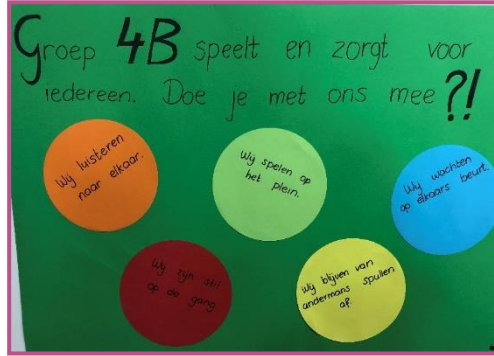 Groep 4B speelt en zorgt voor
iedereen. Doe je met ons mee?!
Wij luisteren
naar elkaar.
Wij spelen op
het plein.
Wij wachten
op elkaars beurt.
Wij zijn stil
op de gang
Wij blijven van
andermans spullen
af.